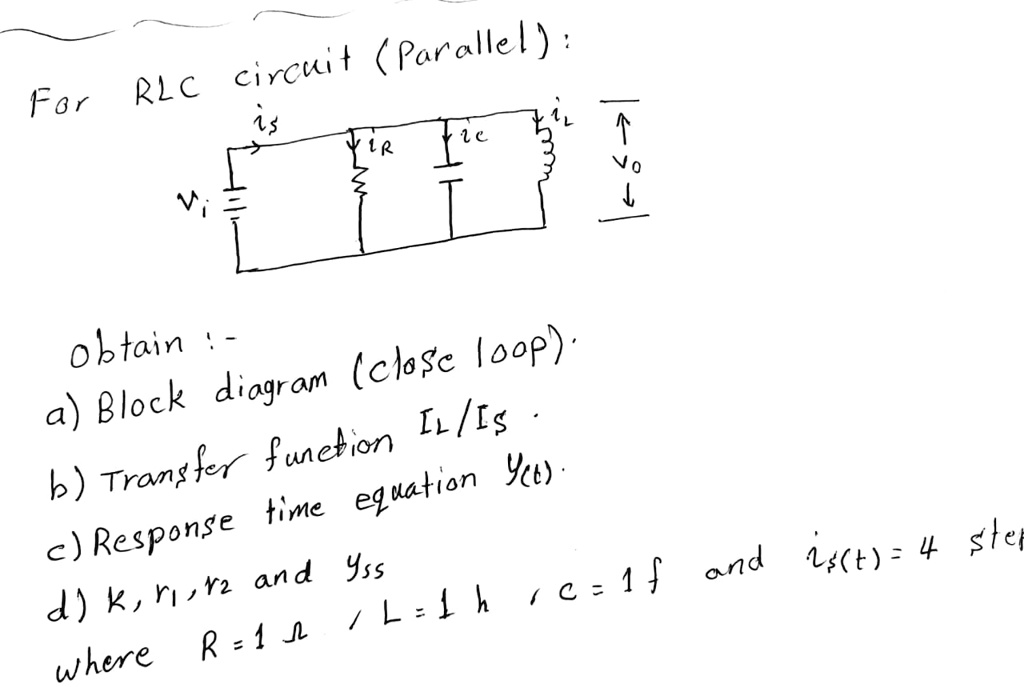 For RLC circuit (Parallel):
is
iR
ic
iL
Vi
Vo
obtain :-
a) Block diagram (close loop).
b) Transfer function IL/Is .
c) Response time equation y(t).
d) k, r1, r2 and yss
where R = 1 Ω , L = 1 h , c = 1 f and is(t) = 4 ste